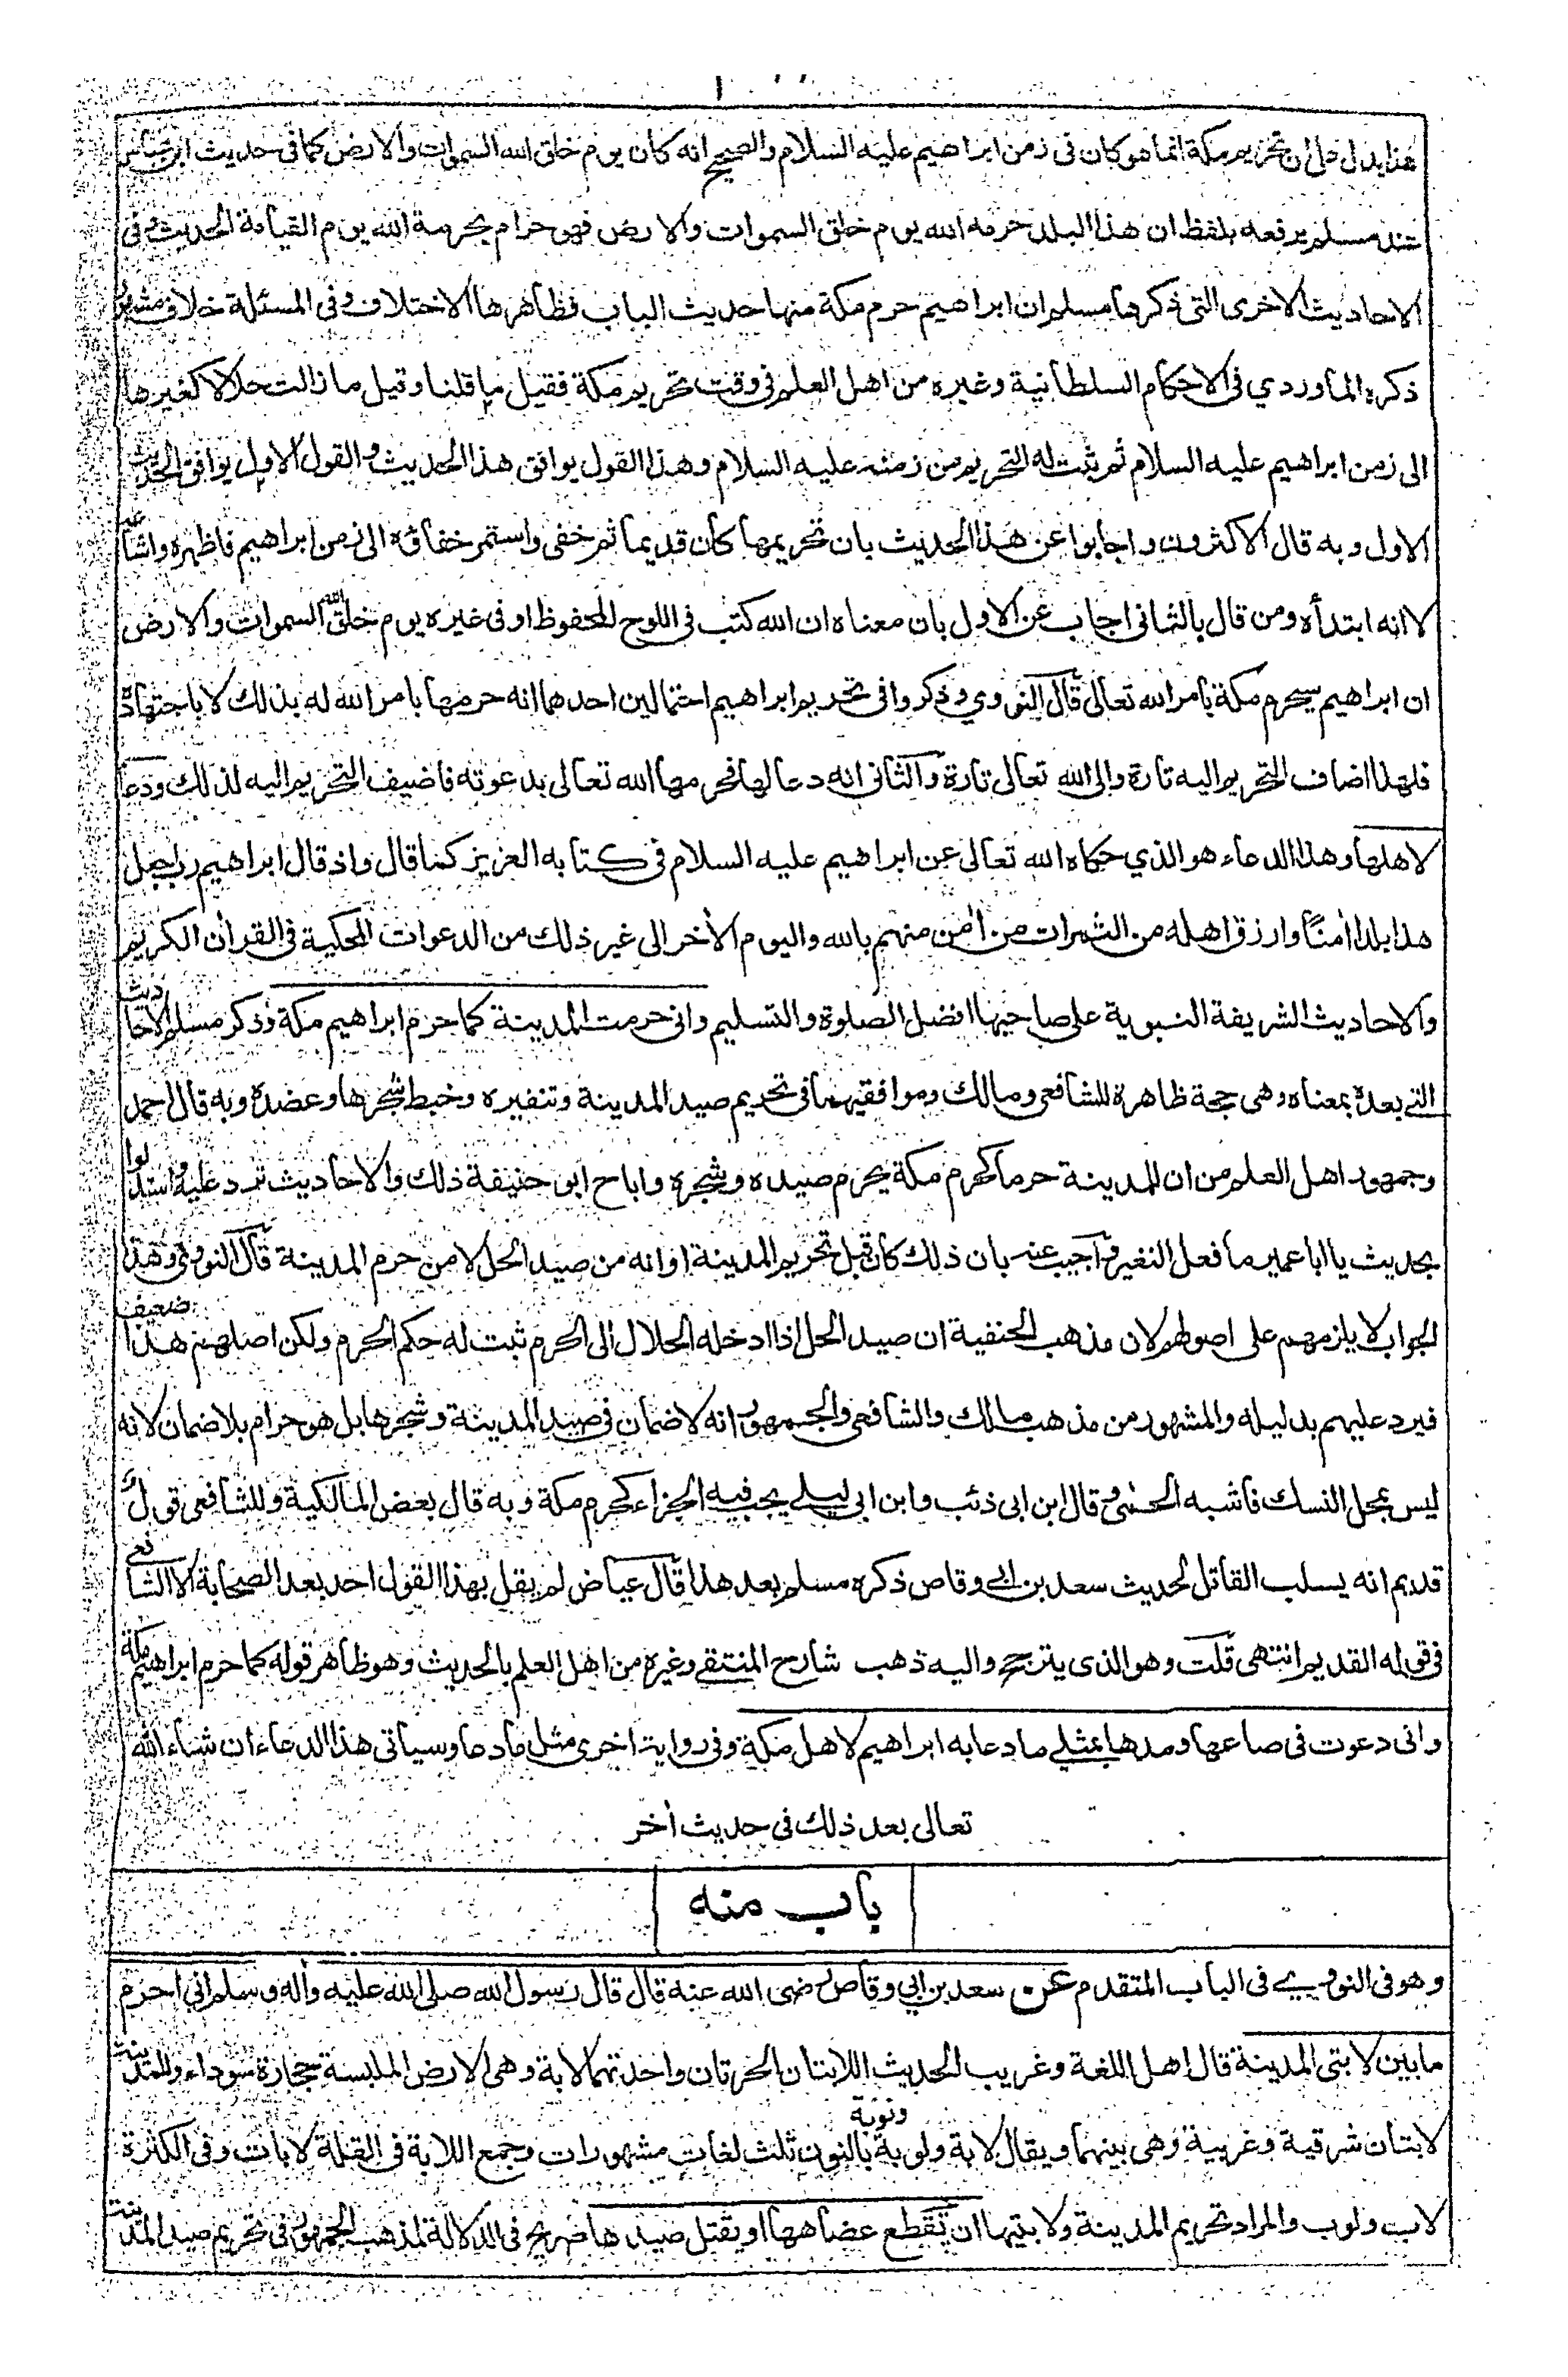 هذا يدل على ان تحريم مكة انما هو كان فى زمن ابراهيم عليه السلام والصحيح انه كان يوم خلق الله السموات والارض كما فى حديث ابن عباس
عند مسلم يرفعه بلفظ ان هذا البلد حرمه الله يوم خلق السموات والارض فهو حرام بحرمة الله يوم القيامة الحديث وفى
الاحاديث الاخرى التى ذكرها مسلم ان ابراهيم حرم مكة منها حديث الباب فظاهرها الاختلاف وفى المسئلة خلاف مشهور
ذكره الماوردي فى الاحكام السلطانية وغيره من اهل العلم فى وقت تحريم مكة فقيل ما قلنا وقيل ما زالت حلالا كغيرها
الى زمن ابراهيم عليه السلام ثم ثبت له التحريم من زمنه عليه السلام وهذا القول يوافق هذا الحديث والقول الاول يوافق الحديث
الاول وبه قال الاكثرون واجابوا عن هذا الحديث بان تحريمها كان قديما ثم خفى واستمر خفاؤه الى زمن ابراهيم فاظهره واشاعه
لا انه ابتدأه ومن قال بالثانى اجاب عن الاول بان معناه ان الله كتب فى اللوح المحفوظ او فى غيره يوم خلق الله السموات والارض
ان ابراهيم سيحرم مكة بامر الله تعالى قال النووي وذكروا فى تحريم ابراهيم احتمالين احدهما انه حرمها بامر الله له بذلك لا باجتهاده
فلهذا اضاف التحريم اليه تارة والى الله تعالى تارة والثانى انه دعا لها فحرمها الله تعالى بدعوته فاضيف التحريم اليه لذلك ودعا
لاهلها وهذا الدعاء هو الذي حكاه الله تعالى عن ابراهيم عليه السلام فى كتابه العزيز كما قال واذ قال ابراهيم رب اجعل
هذا بلدا أمنًا وارزق اهله من الثمرات من أمن منهم بالله واليوم الأخر الى غير ذلك من الدعوات المحكية فى القرأن الكريم
والاحاديث الشريفة النبوية على صاحبها افضل الصلوة والتسليم وانى حرمت المدينة كما حرم ابراهيم مكة وذكر مسلم الاحاديث
التي بعده بمعناه وهى حجة ظاهرة للشافعى ومالك وموافقيهما فى تحريم صيد المدينة وتنفيره وخبط شجرها وعضده وبه قال احمد
وجمهور اهل العلم من ان للمدينة حرما كحرم مكة يحرم صيده وشجره واباح ابو حنيفة ذلك والاحاديث ترد عليه واستدلوا
بحديث يا ابا عمير ما فعل النغير واجيب عنه بان ذلك كان قبل تحريم المدينة او انه من صيد الحل لا من حرم المدينة قال النووى وهذا
الجواب لا يلزمهم على اصولهم لان مذهب الحنفية ان صيد الحل اذا ادخله الحلال الى الحرم ثبت له حكم الحرم ولكن اصلهم هذا ضعيف
فيرد عليهم بدليله والمشهور من مذهب مالك والشافعى والجمهور انه لا ضمان فى صيد المدينة وشجرها بل هو حرام بلا ضمان لانه
ليس بمحل النسك فاشبه الحمى وقال ابن ابى ذئب وابن ابى ليلے يجب فيه الجزاء كحرم مكة وبه قال بعض المالكية وللشافعى قول
قديم انه يسلب القاتل لحديث سعد بن ابے وقاص ذكره مسلم بعد هذا قال عياض لم يقل بهذا القول احد بعد الصحابة الا الشافعى
فى قوله القديم انتهى قلت وهو الذى يترجح واليه ذهب شارح المنتقے وغيره من اهل العلم بالحديث وهو ظاهر قوله كما حرم ابراهيم مكة
وانى دعوت فى صاعها ومدها بمثلے ما دعا به ابراهيم لاهل مكة وفى رواية اخرى مثل ما دعا وسياتى هذا الدعاء ان شاء الله
تعالى بعد ذلك فى حديث أخر
باب منه
وهو فى النووے فى الباب المتقدم عن سعد بن ابي وقاص رضى الله عنه قال قال رسول الله صلى الله عليه وأله وسلم انى احرم
ما بين لابتى المدينة قال اهل اللغة وغريب الحديث اللابتان الحرتان واحدتهما لابة وهى الارض الملبسة حجارة سوداء وللمدينة
لابتان شرقية وغربية وهى بينهما ويقال لابة ولوبة ونوبة بالنون ثلث لغات مشهورات وجمع اللابة فى القلة لابات وفى الكثرة
لاب ولوب والمراد تحريم المدينة ولابتيها ان يقطع عضاهها او يقتل صيدها صريح فى الدلالة لمذهب الجمهور فى تحريم صيد المدينة